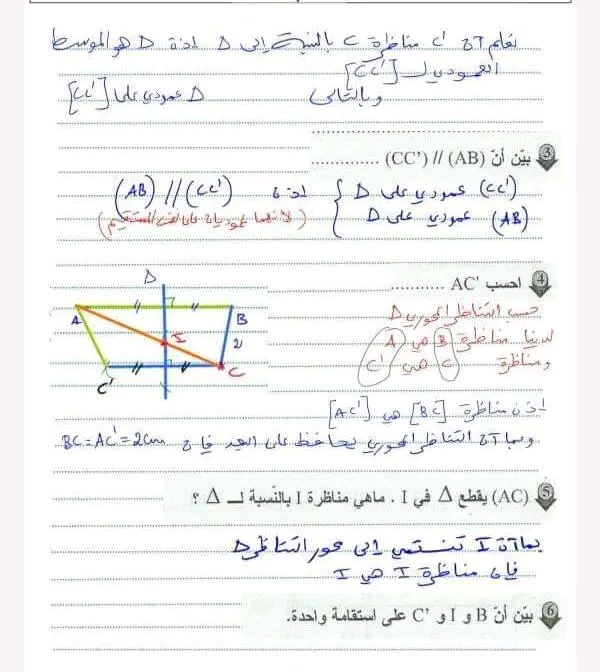 نعلم أن C' مناظرة C بالنسبة إلى Δ إذن Δ هو الموسط
العمودي لـ [CC']
وبالتالي Δ عمودي على [CC']
3 بيّن أنّ (AB) // (CC') .............
(CC') عمودي على Δ إذن (AB) // (CC')
(AB) عمودي على Δ (لأنهما عموديان على نفس المستقيم)
4 احسب AC' ..........
Δ
A
B
2
I
C'
C
حسب التناظر المحوري Δ
لدينا مناظرة B هي A
ومناظرة C هي C'
إذن مناظرة [BC] هي [AC']
وبما أن التناظر المحوري يحافظ على البعد فإن BC=AC'=2cm
5 (AC) يقطع Δ في I . ماهي مناظرة I بالنّسبة لـ Δ ؟
بما أن I تنتمي إلى محور التناظر Δ
فإن مناظرة I هي I
6 بيّن أنّ B و I و C' على استقامة واحدة.